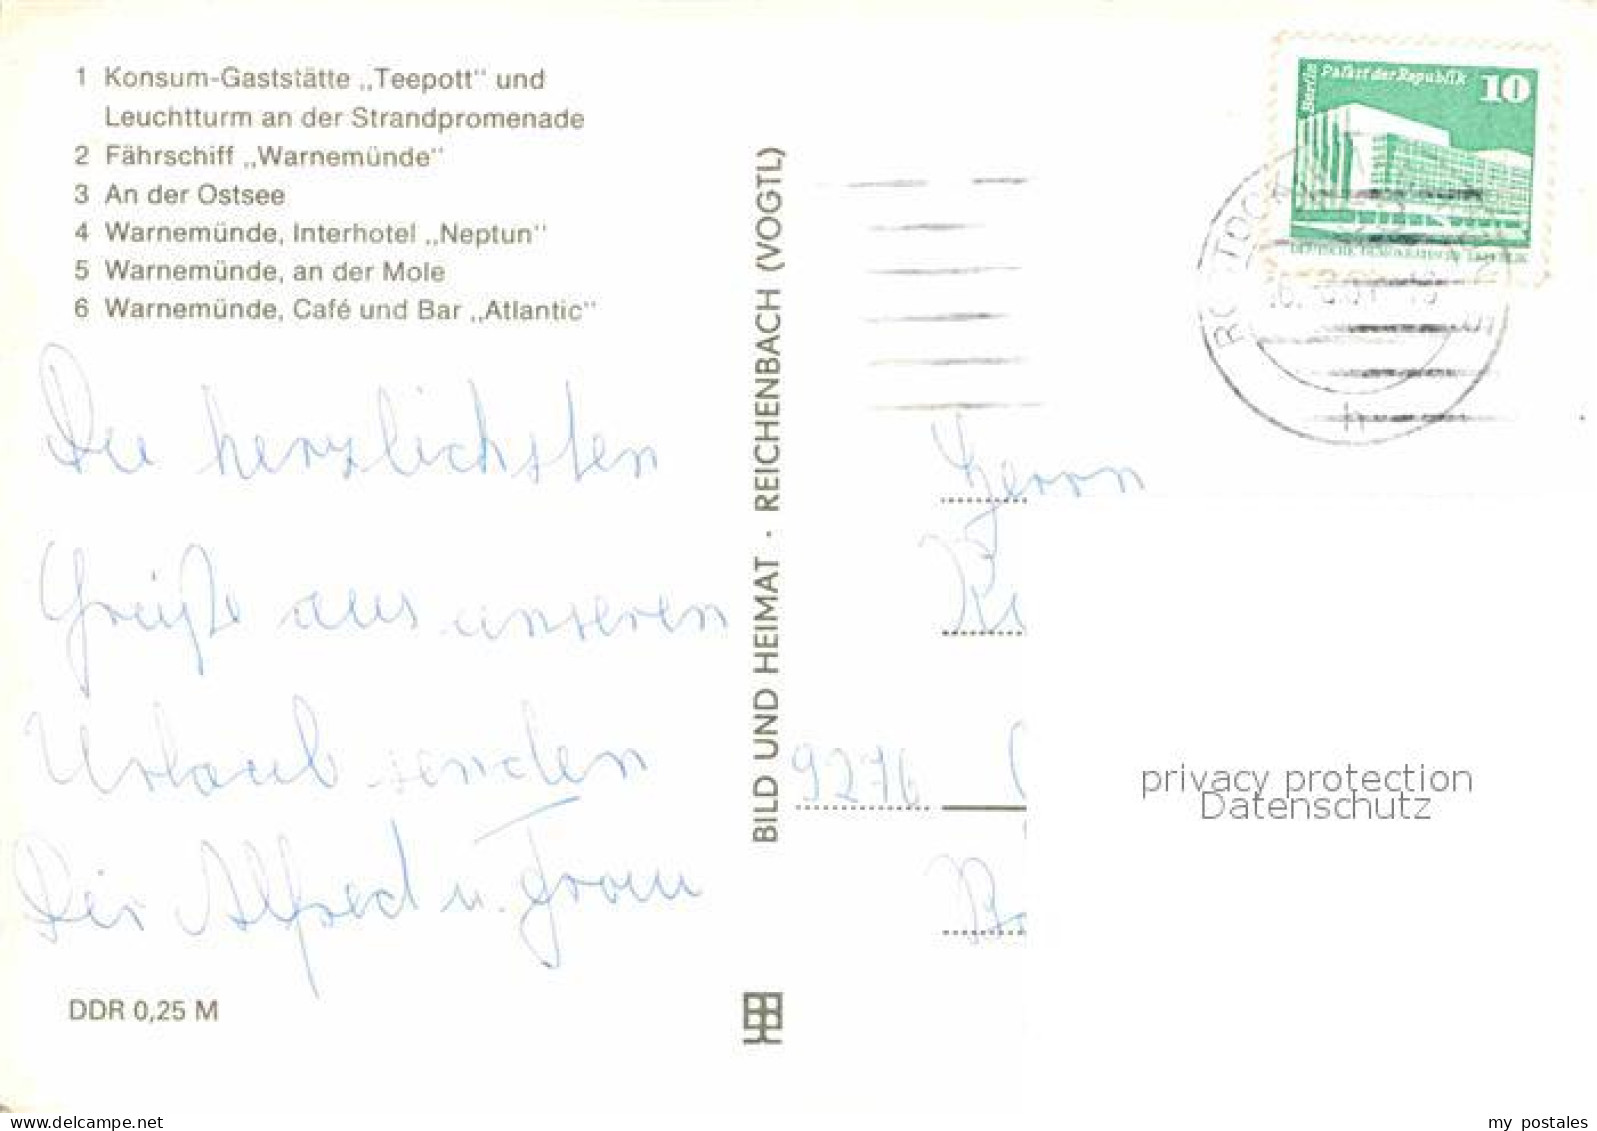 1 Konsum-Gaststätte „Teepott" und
Leuchtturm an der Strandpromenade
2 Fährschiff „Warnemünde"
3 An der Ostsee
4 Warnemünde, Interhotel „Neptun"
5 Warnemünde, an der Mole
6 Warnemünde, Café und Bar „Atlantic"
Die herzlichsten
Grüße aus unseren
Urlaub senden
Dir Alfred u. Frau
DDR 0,25 M
BILD UND HEIMAT · REICHENBACH (VOGTL)
Berlin
Palast der Republik
10
DEUTSCHE DEMOKRATISCHE REPUBLIK
h
Herrn
9276
privacy protection
Datenschutz
www.delcampe.net
my_postales